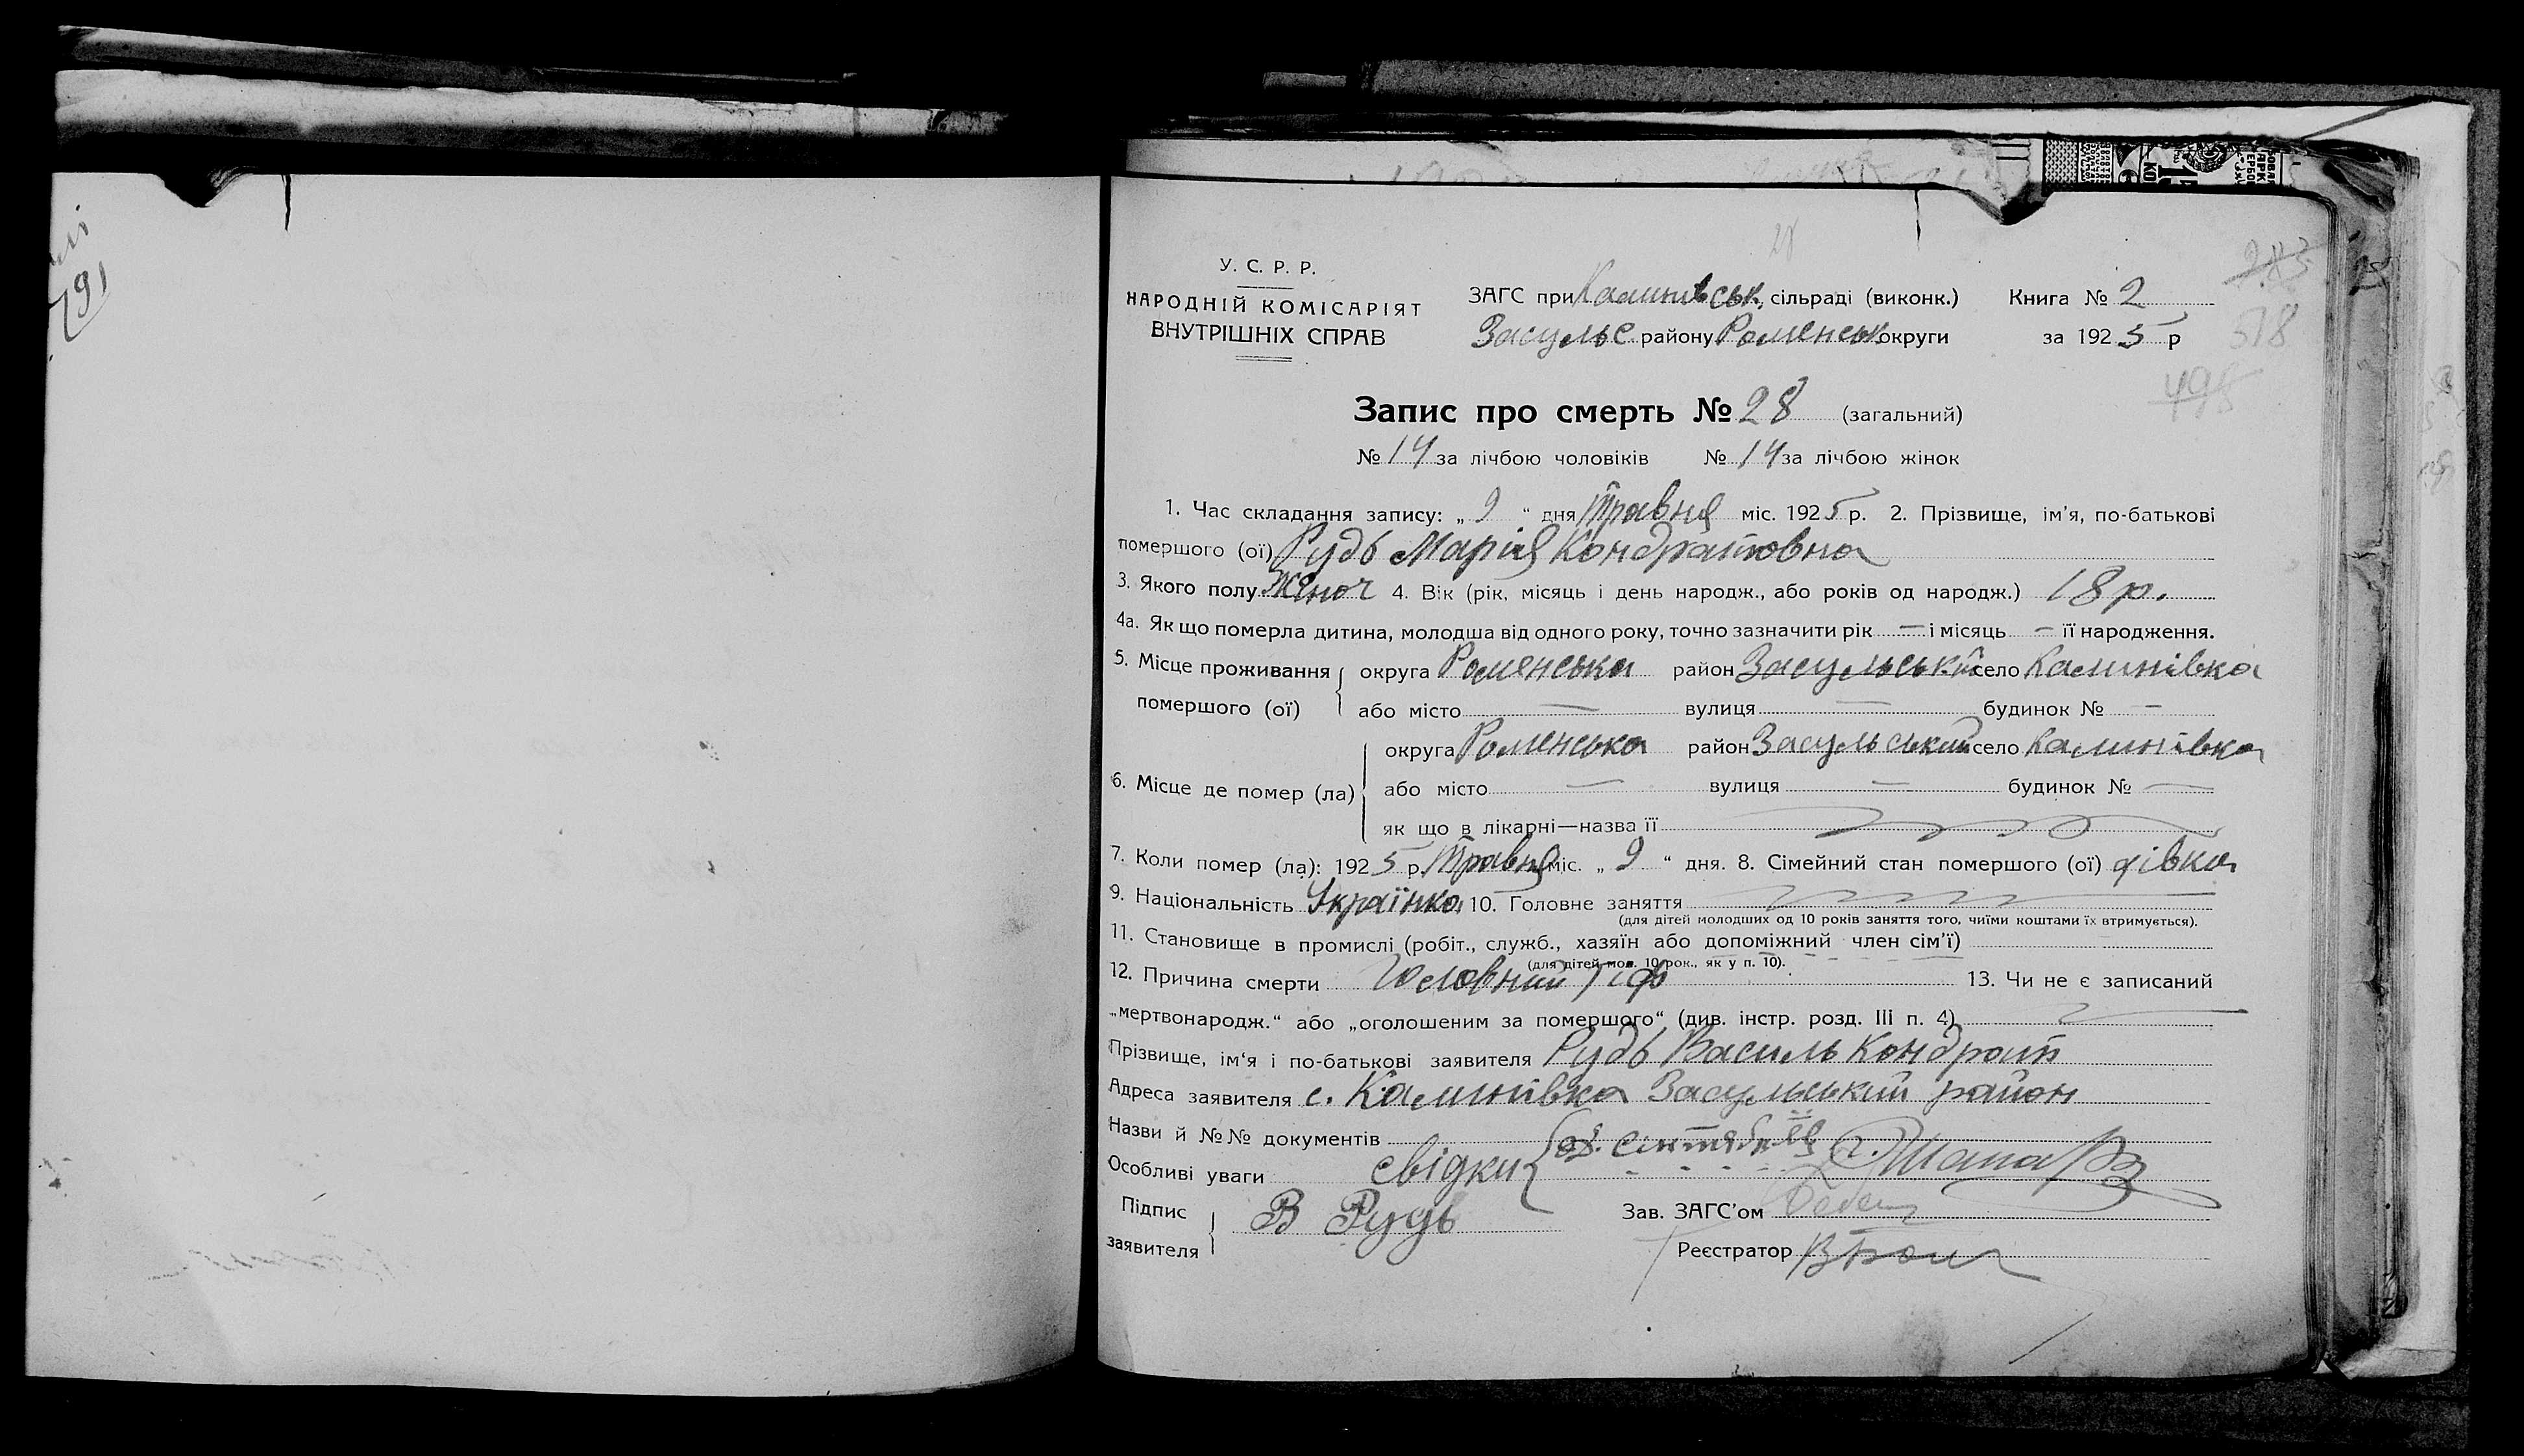 У. С. Р. Р.
НАРОДНІЙ КОМІСАРІЯТ
ВНУТРІШНІХ СПРАВ
ЗАГС при Калинівськ. сільраді (виконк.) Книга № 2
Засульс. району Роменськ. округи за 1925 р
Запис про смерть № 28 (загальний)
№ 14 за лічбою чоловіків № 14 за лічбою жінок
1. Час складання запису: „ 9 “ дня Травня міс. 1925 р. 2. Прізвище, ім'я, по-батькові
помершого (ої) Рудь Марія Кондратовна
3. Якого полу Жіноч 4. Вік (рік, місяць і день народж., або років од народж.) 18 р.
4а. Як що померла дитина, молодша від одного року, точно зазначити рік — і місяць — її народження.
5. Місце проживання помершого (ої) округа Роменська район Засульський село Калинівка
або місто — вулиця — будинок № —
6. Місце де помер (ла) округа Роменська район Засульський село Калинівка
або місто — вулиця — будинок № —
як що в лікарні—назва її
7. Коли помер (ла): 1925 р. Травня міс. „ 9 “ дня. 8. Сімейний стан помершого (ої) дівка
9. Національність Українка 10. Головне заняття
(для дітей молодших од 10 років заняття того, чиїми коштами їх втримується).
11. Становище в промислі (робіт., служб., хазяїн або допоміжний член сім'ї)
(для дітей мол. 10 рок., як у п. 10).
12. Причина смерти Головний Тіф 13. Чи не є записаний
„мертвонародж.“ або „оголошеним за помершого“ (див. інстр. розд. III п. 4)
Прізвище, ім'я і по-батькові заявителя Рудь Василь Кондрат
Адреса заявителя с. Калинівка Засульський район
Назви й №№ документів
Особливі уваги свідки
Підпис заявителя В Рудь
Зав. ЗАГС'ом
Реєстратор